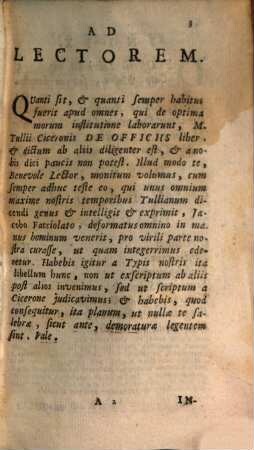 3
AD
LECTOREM.
QVanti sit, & quanti semper habitus
fuerit apud omnes, qui de optima
morum institutione laborarunt, M.
Tullii Ciceronis DE OFFICIIS liber,
& dictum ab aliis diligenter est, & a no-
bis dici paucis non potest. Illud modo te,
Benevole Lector, monitum volumus, cum
semper adhuc teste eo, qui unus omnium
maxime nostris temporibus Tullianum di-
cendi genus & intelligit & exprimit, Ja-
cobo Facciolato, deformatus omnino in ma-
nus hominum venerit, pro virili parte no-
stra curasse, ut quam integerrimus ede-
retur. Habebis igitur a Typis nostris ita
libellum hunc, non ut exscriptum ab aliis
post alios invenimus, sed ut scriptum a
Cicerone judicavimus; & habebis, quod
consequitur, ita planum, ut nullæ te sa-
lebræ, sicut ante, demoraturæ legentem
sint. Vale.
A 2 IN-